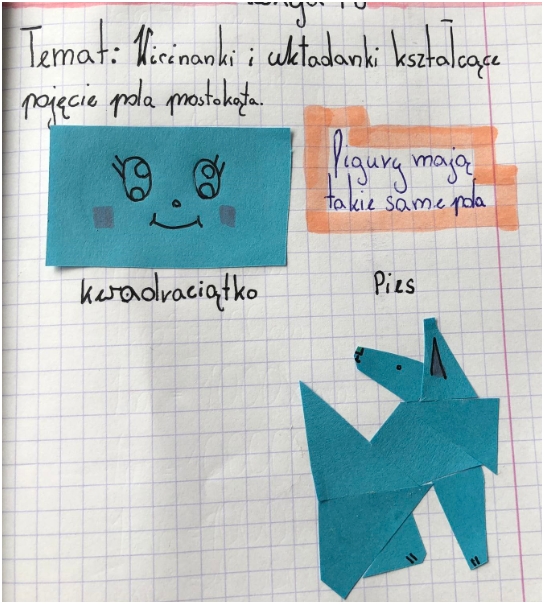 Temat: Wicinanki i układanki kształcące
pojęcie pola prostokąta.
Figury mają
takie same pola
kwadraciątko
Pies